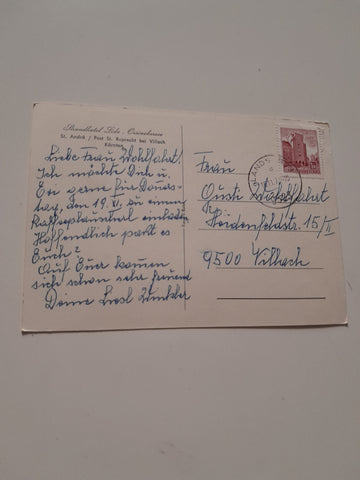 Strandhotel Lido, Ossiachersee
St. Andrä / Post St. Ruprecht bei Villach
Kärnten
Liebe Frau Wohlfahrt!
Ich möchte Dich u.
Es gerne für Donners-
tag, den 19. VI. zu einem
Kaffeeplauscherl einladen.
Hoffentlich paßt es
Euch?
Auf Euer kommen
sich schon sehr freuend
Deine Liesl Winkler
Frau
Guste Wohlfahrt
Heidenfeldstr. 15/II
9500 Villach